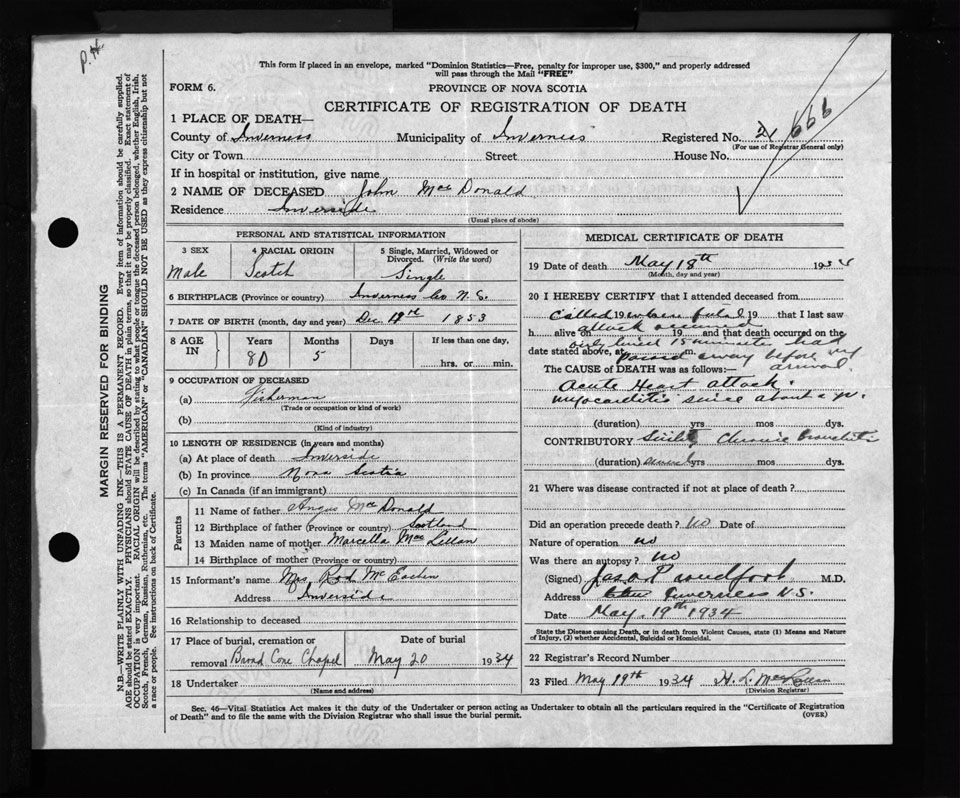 P.H.
This form if placed in an envelope, marked "Dominion Statistics—Free, penalty for improper use, $300," and properly addressed
will pass through the Mail "FREE"
FORM 6.
PROVINCE OF NOVA SCOTIA
CERTIFICATE OF REGISTRATION OF DEATH
1 PLACE OF DEATH—
County of Inverness Municipality of Inverness Registered No. 666
(For use of Registrar General only)
City or Town Street House No.
If in hospital or institution, give name
2 NAME OF DECEASED John MacDonald
Residence Inverside
(Usual place of abode)
PERSONAL AND STATISTICAL INFORMATION
3 SEX 4 RACIAL ORIGIN 5 Single, Married, Widowed or
Divorced. (Write the word)
Male Scotch Single
6 BIRTHPLACE (Province or country) Inverness Co N.S.
7 DATE OF BIRTH (month, day and year) Dec 1853
8 AGE IN Years Months If less than one day,
80 5 hrs. or min.
9 OCCUPATION OF DECEASED
(a) Fisherman
(Trade or occupation or kind of work)
(b)
(Kind of industry)
10 LENGTH OF RESIDENCE (in years and months)
(a) At place of death Inverside
(b) In province Nova Scotia
(c) In Canada (if an immigrant)
Parents
11 Name of father Angus MacDonald
12 Birthplace of father (Province or country) Scotland
13 Maiden name of mother Marcella MacLellan
14 Birthplace of mother (Province or country)
15 Informant's name Mrs Rod McEachen
Address Inverside
16 Relationship to deceased
17 Place of burial, cremation or Date of burial
removal Broad Cove Chapel May 20 1934
18 Undertaker
(Name and address)
MEDICAL CERTIFICATE OF DEATH
19 Date of death May 18th 1934
(Month, day and year)
20 I HEREBY CERTIFY that I attended deceased from
Called 19 when fatal 19 that I last saw
attack occurred
h alive on 19 and that death occurred on the
only lived 15 minutes had
date stated above, at m. passed away before my
The CAUSE of DEATH was as follows:— arrival.
Acute Heart attack.
myocarditis since about a yr.
(duration) yrs mos dys.
CONTRIBUTORY Chronic
(duration) yrs mos dys.
21 Where was disease contracted if not at place of death?
Did an operation precede death? No Date of
Nature of operation no
Was there an autopsy? no
(Signed) Jas. Proudfoot M.D.
Address Inverness N.S.
Date May 19th 1934
State the Disease causing Death, or in death from Violent Causes, state (1) Means and Nature
of Injury, (2) whether Accidental, Suicidal or Homicidal.
22 Registrar's Record Number
23 Filed May 19th 1934 H. L.
(Division Registrar)
Sec. 46—Vital Statistics Act makes it the duty of the Undertaker or person acting as Undertaker to obtain all the particulars required in the "Certificate of Registration
of Death" and to file the same with the Division Registrar who shall issue the burial permit. (OVER)
MARGIN RESERVED FOR BINDING
N.B.—WRITE PLAINLY WITH UNFADING INK—THIS IS A PERMANENT RECORD. Every item of information should be carefully supplied.
AGE should be stated EXACTLY. PHYSICIANS should STATE CAUSE OF DEATH in plain terms, so that it may be properly classified. Exact statement of
OCCUPATION is very important. RACIAL ORIGIN will be described by stating to what people or tongue the deceased person belonged, whether English, Irish,
Scotch, French, German, Russian, Ruthenian, etc. The terms "AMERICAN" or "CANADIAN" SHOULD NOT BE USED as they express citizenship but not
a race or people. See instructions on back of Certificate.